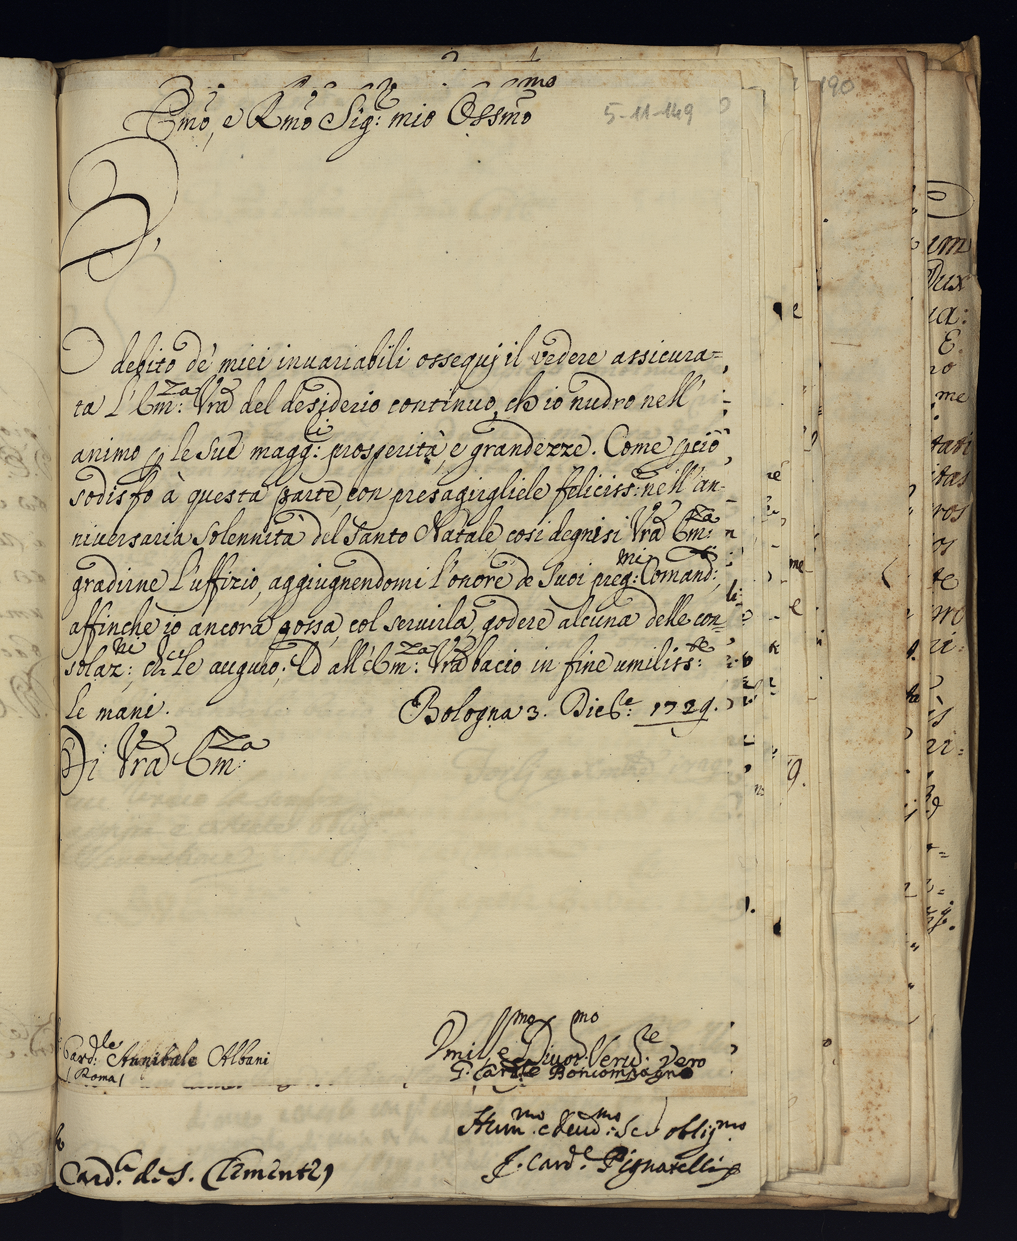 Emo, e Rmo Sig:r mio Ossmo mo
5-11-149
190
È debito de' miei invariabili ossequj il vedere assicura=
ta l'Em:za Vrã del desiderio continuo, ch'io nudro nell'
animo p le Sue magg:ri prosperità, e grandezze. Come pciò
sodisfo à questa parte, con presagirgliele feliciss:e nell'an-
niversaria Solennità del Santo Natale così degnisi Vrã Em:za
gradirne l'uffizio, aggiugnendomi l'onore de' Suoi preg:mi Comandi:,
affinche io ancora possa, col servirla, godere alcuna delle con=
solaz:ni; che le auguro; Ed all'Em:za Vrã bacio in fine umiliss:te
le mani.
Bologna 3. Dic6:e 1729.
Di Vrã Em:za
Card:le Annibale Albani
(Roma)
Umil:mo e Divot:mo Serv:re vero
G. Card:le Boncompagno
Hum:mo e Deud:mo Ser oblig:mo
F. Card:l Pignatelli
Card:l de S. Clemente